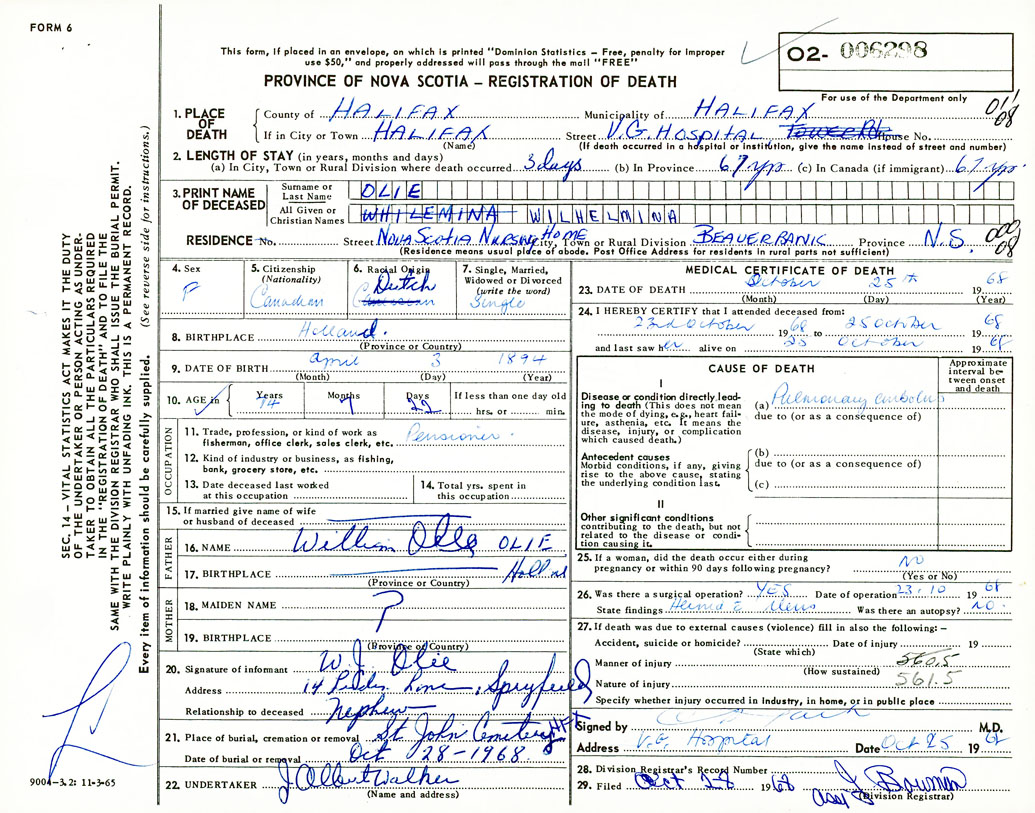 FORM 6
This form, if placed in an envelope, on which is printed "Dominion Statistics – Free, penalty for improper
use $50," and properly addressed will pass through the mail "FREE"
PROVINCE OF NOVA SCOTIA – REGISTRATION OF DEATH
02- 006298
For use of the Department only
011
08
1. PLACE OF DEATH
County of HALIFAX Municipality of HALIFAX
If in City or Town HALIFAX Street V.G. HOSPITAL House No.
(Name) (If death occurred in a hospital or institution, give the name instead of street and number)
2. LENGTH OF STAY (in years, months and days)
(a) In City, Town or Rural Division where death occurred 3 days (b) In Province 67 yrs (c) In Canada (if immigrant) 67 yrs
3. PRINT NAME OF DECEASED
Surname or Last Name OLIE
All Given or Christian Names WHILEMINA WILHELMINA
RESIDENCE No. Street NOVA SCOTIA NURSING HOME City, Town or Rural Division BEAVERBANK Province N.S.
(Residence means usual place of abode. Post Office Address for residents in rural parts not sufficient)
000
08
4. Sex F
5. Citizenship (Nationality) Canadian
6. Racial Origin Dutch
7. Single, Married, Widowed or Divorced (write the word) Single
8. BIRTHPLACE Holland.
(Province or Country)
9. DATE OF BIRTH April 3 1894
(Month) (Day) (Year)
10. AGE in Years 74 Months 7 Days 22 If less than one day old hrs. or min.
OCCUPATION
11. Trade, profession, or kind of work as fisherman, office clerk, sales clerk, etc. Pensioner.
12. Kind of industry or business, as fishing, bank, grocery store, etc.
13. Date deceased last worked at this occupation
14. Total yrs. spent in this occupation
15. If married give name of wife or husband of deceased
FATHER
16. NAME William Olie OLIE
17. BIRTHPLACE
(Province or Country)
MOTHER
18. MAIDEN NAME ?
19. BIRTHPLACE
(Province or Country)
20. Signature of informant W. J. Olie
Address 14 Lane, Spryfield
Relationship to deceased Nephew
21. Place of burial, cremation or removal St John Cemetery HFX
Date of burial or removal Oct 28-1968.
22. UNDERTAKER J Albert Walker
(Name and address)
MEDICAL CERTIFICATE OF DEATH
23. DATE OF DEATH October 25th 1968
(Month) (Day) (Year)
24. I HEREBY CERTIFY that I attended deceased from:
23rd October 1968 to 25 October 1968
and last saw her alive on 25 October 1968
CAUSE OF DEATH
Approximate interval between onset and death
I
Disease or condition directly leading to death (This does not mean the mode of dying, e.g., heart failure, asthenia, etc. It means the disease, injury, or complication which caused death.)
(a) Pulmonary embolus
due to (or as a consequence of)
Antecedent causes
Morbid conditions, if any, giving rise to the above cause, stating the underlying condition last.
(b)
due to (or as a consequence of)
(c)
II
Other significant conditions
contributing to the death, but not related to the disease or condition causing it.
25. If a woman, did the death occur either during pregnancy or within 90 days following pregnancy? NO
(Yes or No)
26. Was there a surgical operation? YES Date of operation 23.10 1968
State findings Hernia Ileus Was there an autopsy? NO.
27. If death was due to external causes (violence) fill in also the following: –
Accident, suicide or homicide? Date of injury 19
(State which)
Manner of injury 560.5
(How sustained)
Nature of injury 561.5
Specify whether injury occurred in Industry, in home, or in public place
Signed by M.D.
Address V.G. Hospital Date Oct 25 1968
28. Division Registrar's Record Number
29. Filed Oct 28 1968 J. Bowman
(Division Registrar)
SEC. 14 – VITAL STATISTICS ACT MAKES IT THE DUTY
OF THE UNDERTAKER OR PERSON ACTING AS UNDER-
TAKER TO OBTAIN ALL THE PARTICULARS REQUIRED
IN THE "REGISTRATION OF DEATH" AND TO FILE THE
SAME WITH THE DIVISION REGISTRAR WHO SHALL ISSUE THE BURIAL PERMIT.
WRITE PLAINLY WITH UNFADING INK. THIS IS A PERMANENT RECORD.
Every item of information should be carefully supplied. (See reverse side for instructions.)
9004-3.2: 11-3-65